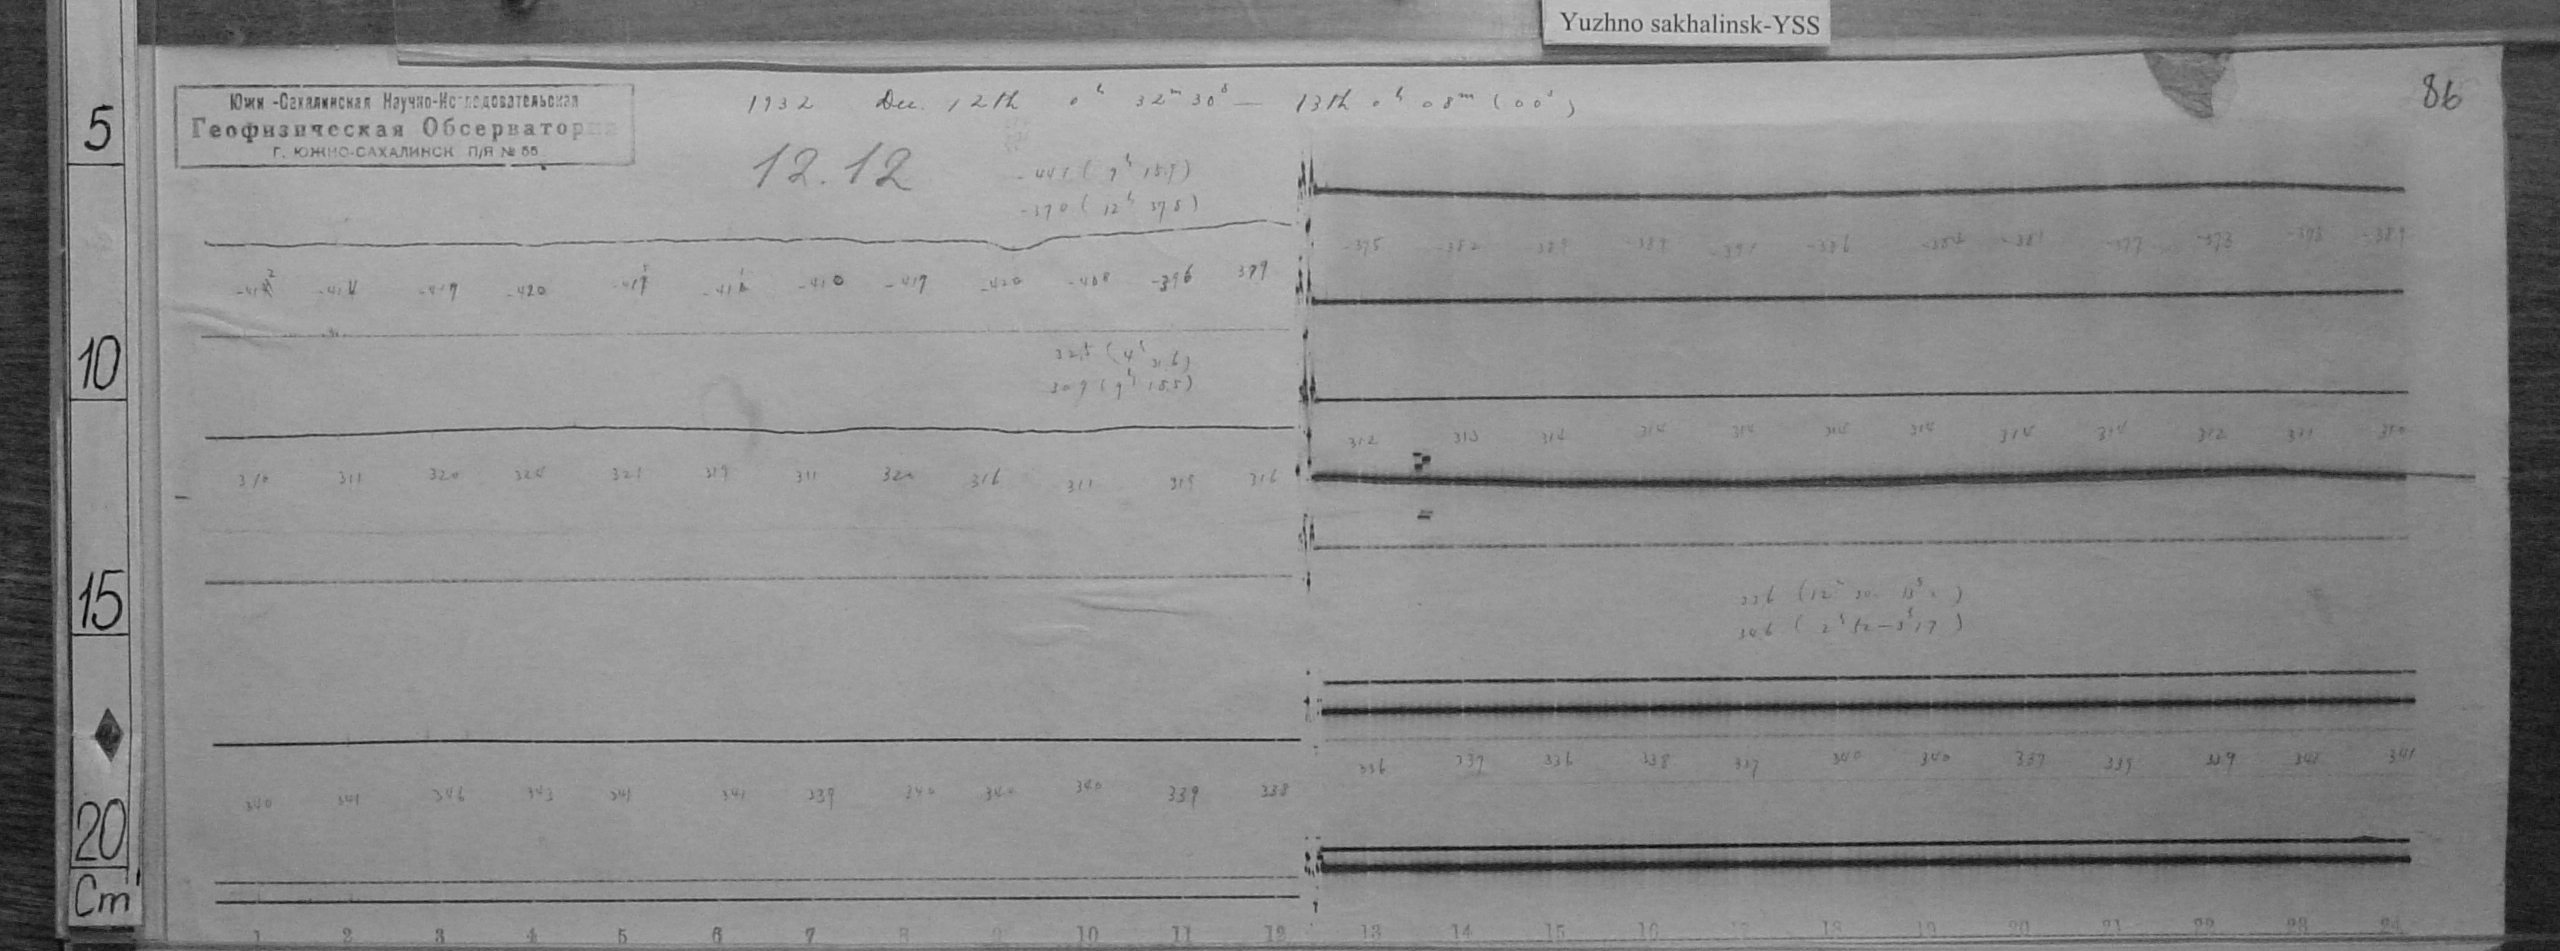 Yuzhno sakhalinsk-YSS
86
Южн -Сахалинская Научно-Исследовательская
Геофизическая Обсерватория
Г. ЮЖНО-САХАЛИНСК П/Я № 55
1932 Dec. 12th 0h 32m 30s — 13th 0h 08m (00s)
12.12
-441 (9h 18.9)
-370 (12h 37.8)
-375 -382 -389 -389 -391 -386 -384 -381 -377 -373 -389
-419 -420 -410 -419 -420 -408 -396 399
309 (9h 18.5)
312 313 314 314 314 314 314 314 314 312 311 310
310 311 320 324 321 319 311 320 316 311 319 316
336 339 336 338 337 340 340 339 339 339 341 341
340 341 346 343 341 341 339 340 340 340 339 338
1 2 3 4 5 6 7 8 9 10 11 12 13 14 15 16 17 18 19 20 21 22 23 24
5
10
15
20
Cm